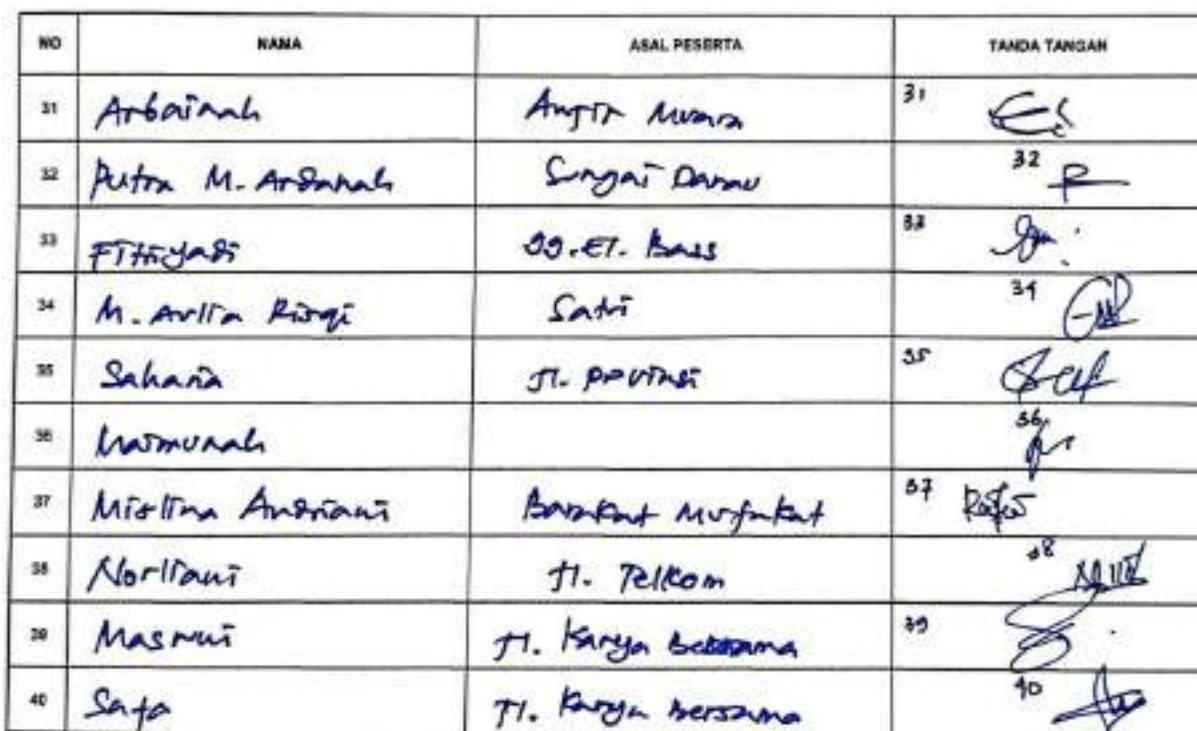 NO NAMA ASAL PESERTA TANDA TANGAN
31 Arbainah Angsir Muara 31
32 Putra M. Ardanah Sungai Danau 32
33 Fitriyadi 33
34 M. Arlia Rizqi Satui 34
35 Saharia Jl. Provinsi 35
36 Maimunah 36
37 Mislina Andriani Barakat Mufakat 37
38 Norliani Jl. Telkom 38
39 Masnui Jl. Karya Bersama 39
40 Jl. Karya Bersama 40